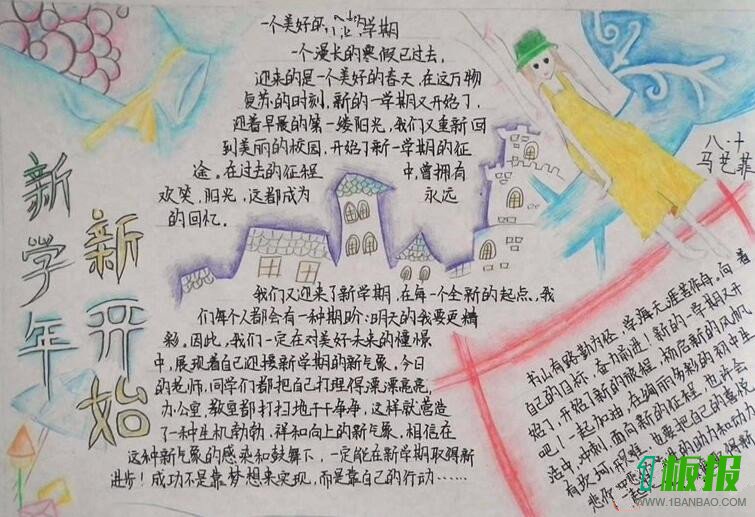 新学年
新开始
一个美好的 学期
一个漫长的寒假已过去,
迎来的是一个美好的春天,在这万物
复苏的时刻,新的一学期又开始了,
迎着早晨的第一缕阳光,我们又重新回
到美丽的校园,开始了新一学期的征
途。在过去的征程中,曾拥有
欢笑,阳光,这都成为永远
的回忆。
八.十
马艺菲
我们又迎来了新学期,在每一个全新的起点,我
们每个人都会有一种期盼:明天的我要更精
彩。因此,我们一定在对美好未来的憧憬
中,展现着自己迎接新学期的新气象,今日
的老师,同学们都把自己打理得漂漂亮亮,
办公室,教室都打扫地干干净净,这样就营造
了一种生机勃勃,祥和向上的新气象,相信在
这种新气象的感染和鼓舞下,一定能在新学期取得新
进步!成功不是靠梦想来实现,而是靠自己的行动……
书山有路勤为径,学海无涯苦作舟,向着
自己的目标,奋力前进!新的一学期又开
始了,开始了新的旅程,扬启新的风帆
吧!一起加油,在绚丽多彩的初中生
活中,冲刺,面向新的征程,也许会
有坎坷,困难,也要把自己的喜怒
悲
板报
WWW.1BANBAO.COM